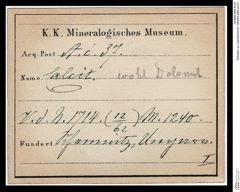 K. K. Mineralogisches Museum.
Acq.-Post A. c. 37.
Name Calcit. wohl Dolomit
V. d. N. 1714. (12/62) M. 1240.
Fundort Schemnitz, Ungarn.
I